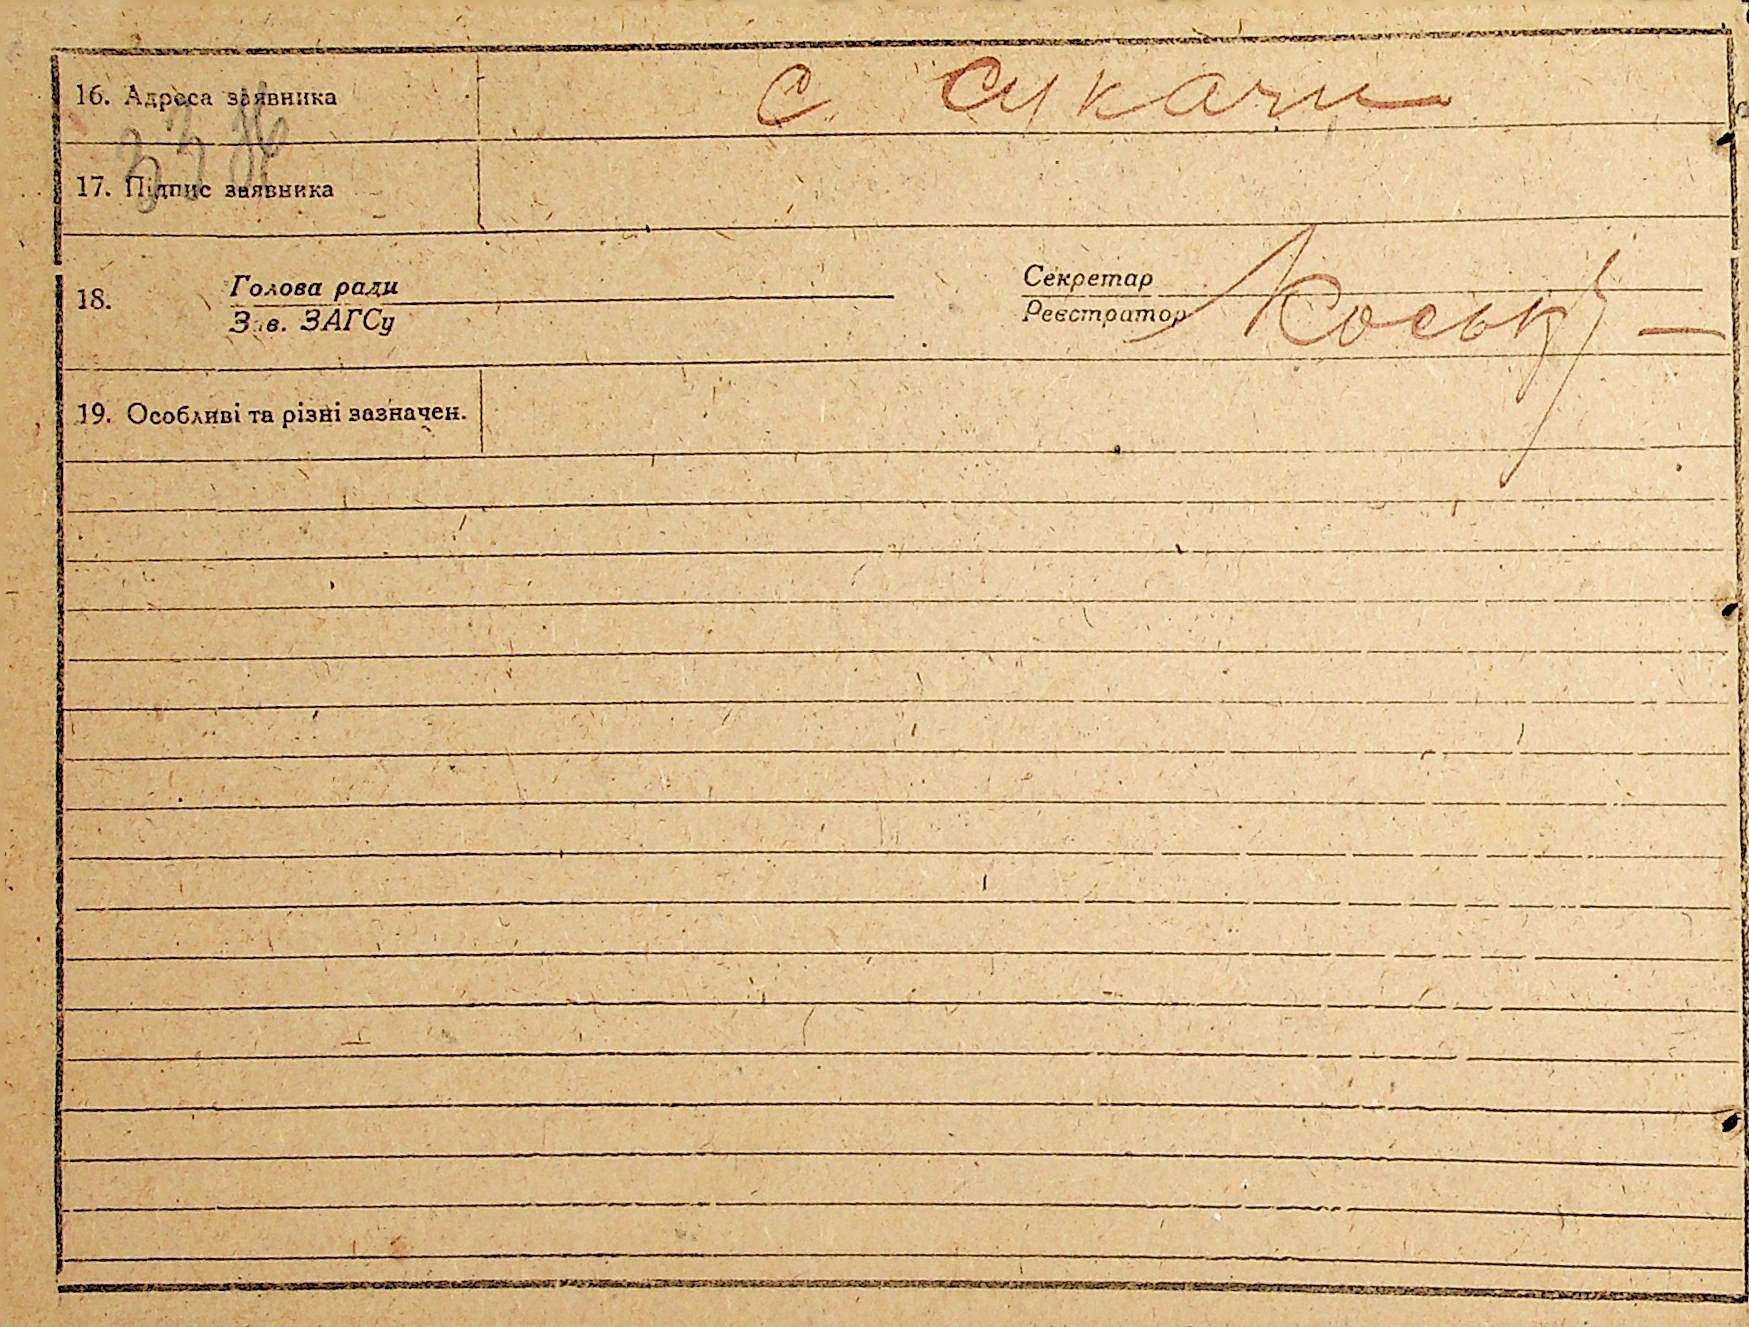 16. Адреса заявника с. Сукачи
17. Підпис заявника
18. Голова ради Секретар
Зав. ЗАГСу Реєстратор
19. Особливі та різні зазначен.